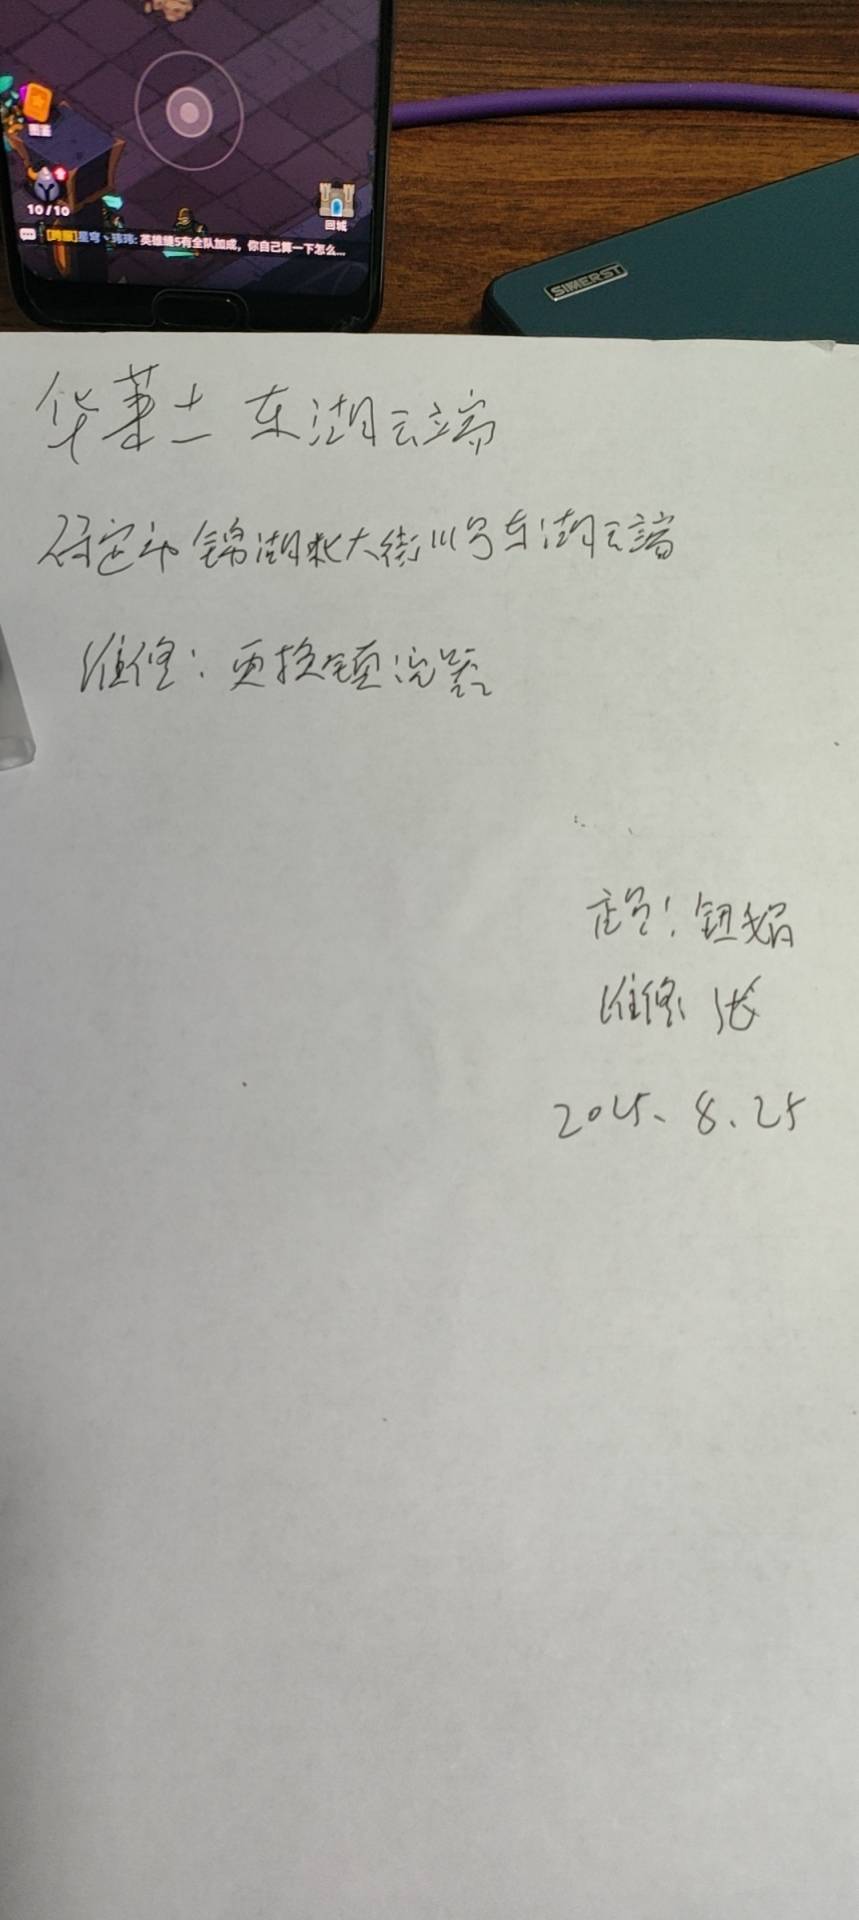 10/10
回城
星穹、玮玮: 英雄链5有全队加成，你自己算一下怎么...
SIMERST
华莱士 东湖云端
保定市 锦湖北大街111号东湖云端
维修: 更换镇流器
店员: 钮娟
维修: 张
2025. 8. 25